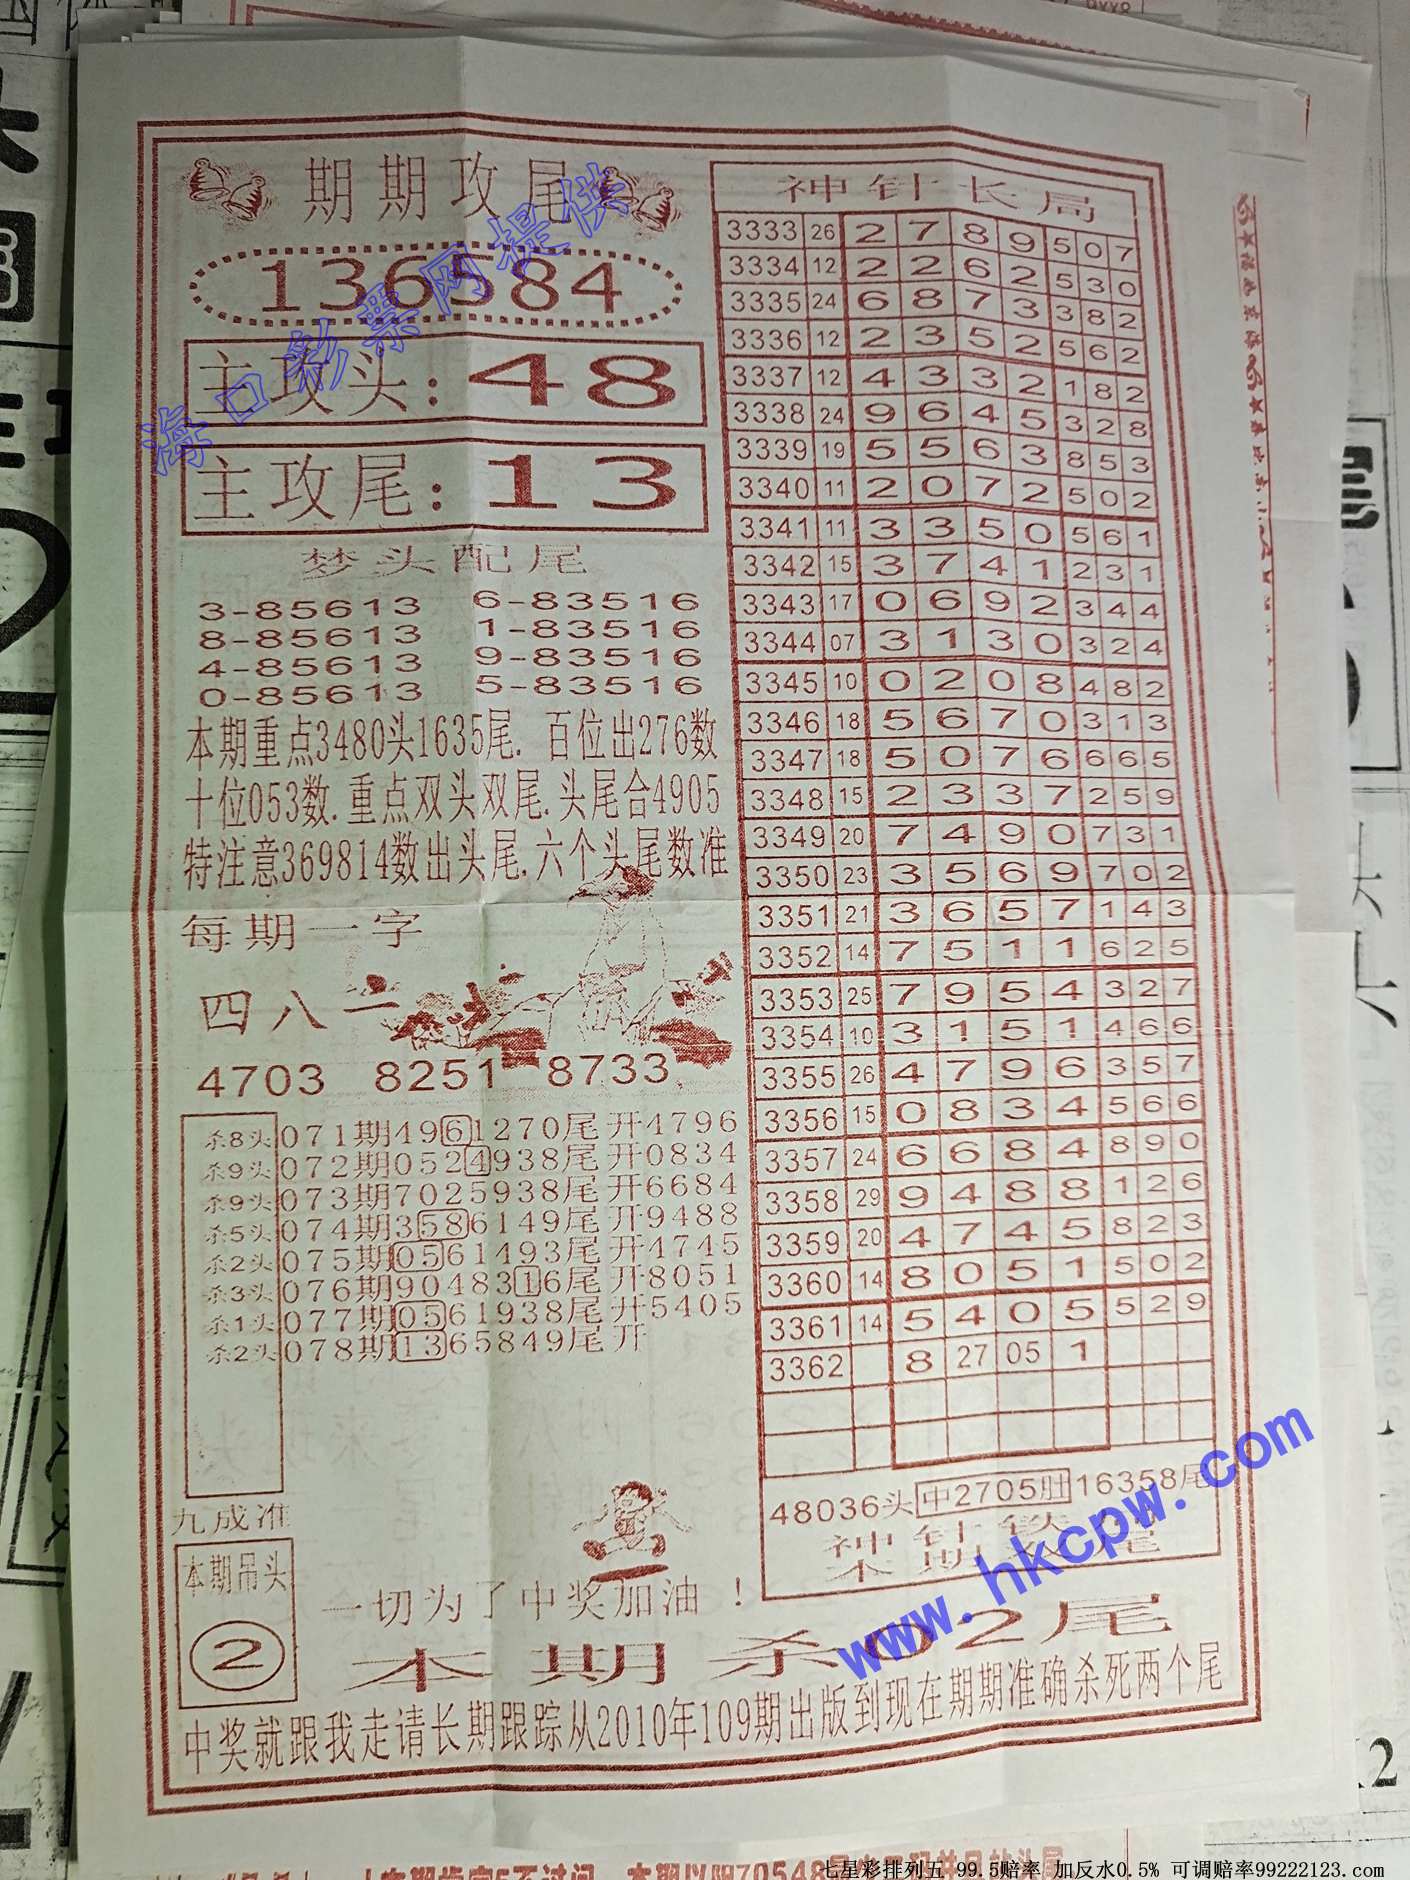 期期攻尾
136584
主攻头:48
主攻尾:13
梦头配尾
3-85613 6-83516
8-85613 1-83516
4-85613 9-83516
0-85613 5-83516
本期重点3480头1635尾. 百位出276数
十位053数.重点双头双尾.头尾合4905
特注意369814数出头尾.六个头尾数准
每期一字
四八二
4703 8251 8733
杀8头 071期4961270尾开4796
杀9头 072期0524938尾开0834
杀9头 073期7025938尾开6684
杀5头 074期3586149尾开9488
杀2头 075期0561493尾开4745
杀3头 076期9048316尾开8051
杀1头 077期0561938尾开5405
杀2头 078期1365849尾开
九成准
本期吊头
2
一切为了中奖加油!
神针长局
3333 26 2 7 8 9 5 0 7
3334 12 2 2 6 2 5 3 0
3335 24 6 8 7 3 3 8 2
3336 12 2 3 5 2 5 6 2
3337 12 4 3 3 2 1 8 2
3338 24 9 6 4 5 3 2 8
3339 19 5 5 6 3 8 5 3
3340 11 2 0 7 2 5 0 2
3341 11 3 3 5 0 5 6 1
3342 15 3 7 4 1 2 3 1
3343 17 0 6 9 2 3 4 4
3344 07 3 1 3 0 3 2 4
3345 10 0 2 0 8 4 8 2
3346 18 5 6 7 0 3 1 3
3347 18 5 0 7 6 6 6 5
3348 15 2 3 3 7 2 5 9
3349 20 7 4 9 0 7 3 1
3350 23 3 5 6 9 7 0 2
3351 21 3 6 5 7 1 4 3
3352 14 7 5 1 1 6 2 5
3353 25 7 9 5 4 3 2 7
3354 10 3 1 5 1 4 6 6
3355 26 4 7 9 6 3 5 7
3356 15 0 8 3 4 5 6 6
3357 24 6 6 8 4 8 9 0
3358 29 9 4 8 8 1 2 6
3359 20 4 7 4 5 8 2 3
3360 14 8 0 5 1 5 0 2
3361 14 5 4 0 5 5 2 9
3362 8 27 05 1
48036头中2705肚16358尾
神针铁
本期杀02尾
中奖就跟我走请长期跟踪从2010年109期出版到现在期期准确杀死两个尾
海口彩票网提供
www.hkcpw.com
七星彩排列五 99.5赔率 加反水0.5% 可调赔率99222123.com